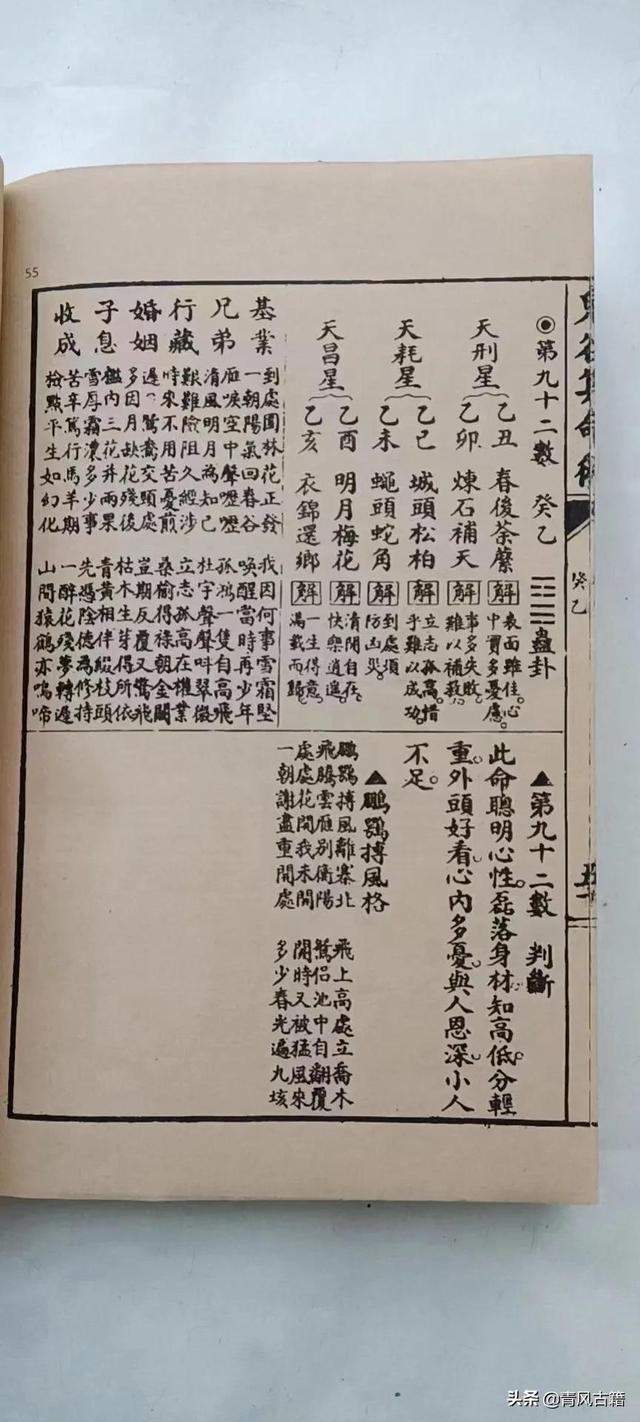 ◉第九十二數 癸乙 ䷑蠱卦
天刑星
乙丑 春後荼蘼 解 表面雖佳。心中實多憂慮。
乙卯 煉石補天 解 事多失敗。難以補救。
天耗星
乙巳 城頭松柏 解 立志孤高。惜乎難以成功。
乙未 蠅頭蛇角 解 到處須防凶災。
天昌星
乙酉 明月梅花 解 清閒自在。快樂逍遙。
乙亥 衣錦還鄉 解 一生得意。滿載而歸。
基業
到處園林花正發 我因何事雪霜堅
一朝陽氣回春谷 喚醒當時再少年
兄弟
雁唳空中聲嚦嚦 孤鴻一隻自高飛
清風明月為知己 杜宇聲聲叫翠微
行藏
艱難險阻久經涉 立志孤高在權業
時來不用苦憂煎 桑榆得祿朝金闕
婚姻
過鴛鴦交頸處 豈期反覆又驚飛
多因月缺花殘後 枯木生芽得所依
子息
檻內三花并兩果 青黃相伴綴枝頭
雪厚霜濃多少事 先憑陰德為修持
收成
苦辛駕行馬羊期 一醉花殘夢轉遲
檢點平生如幻化 山間猿鶴亦鳴啼
▲第九十二數 判斷
此命聰明心性。磊落身材。知高低。分輕
重。外頭好看。心內多憂。與人恩深。小人
不足。
▲鵬鶚搏風格
鵬鶚搏風離塞北 飛上高處立喬木
飛騰雲雁別衡陽 鴛侶池中自翻覆
處處花開我未開 開時又被猛風來
一朝謝盡重開處 多少春光遍九垓
癸乙
55
头条 @青风古籍